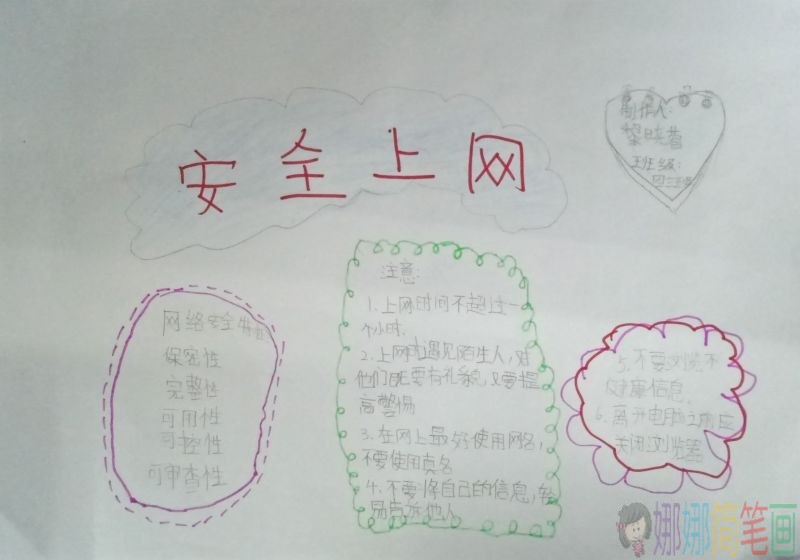 安全上网
制作人:
黎晓蕾
班级:
四三班
网络安全特征
保密性
完整性
可用性
可控性
可审查性
注意:
1.上网时间不超过一
个小时.
2.上网时遇见陌生人,对
他们既要有礼貌,又要提
高警惕
3.在网上最好使用网名,
不要使用真名
4.不要将自己的信息,轻
易告诉他人
5.不要浏览不
健康信息.
6.离开电脑之前应
关闭浏览器
娜娜简笔画